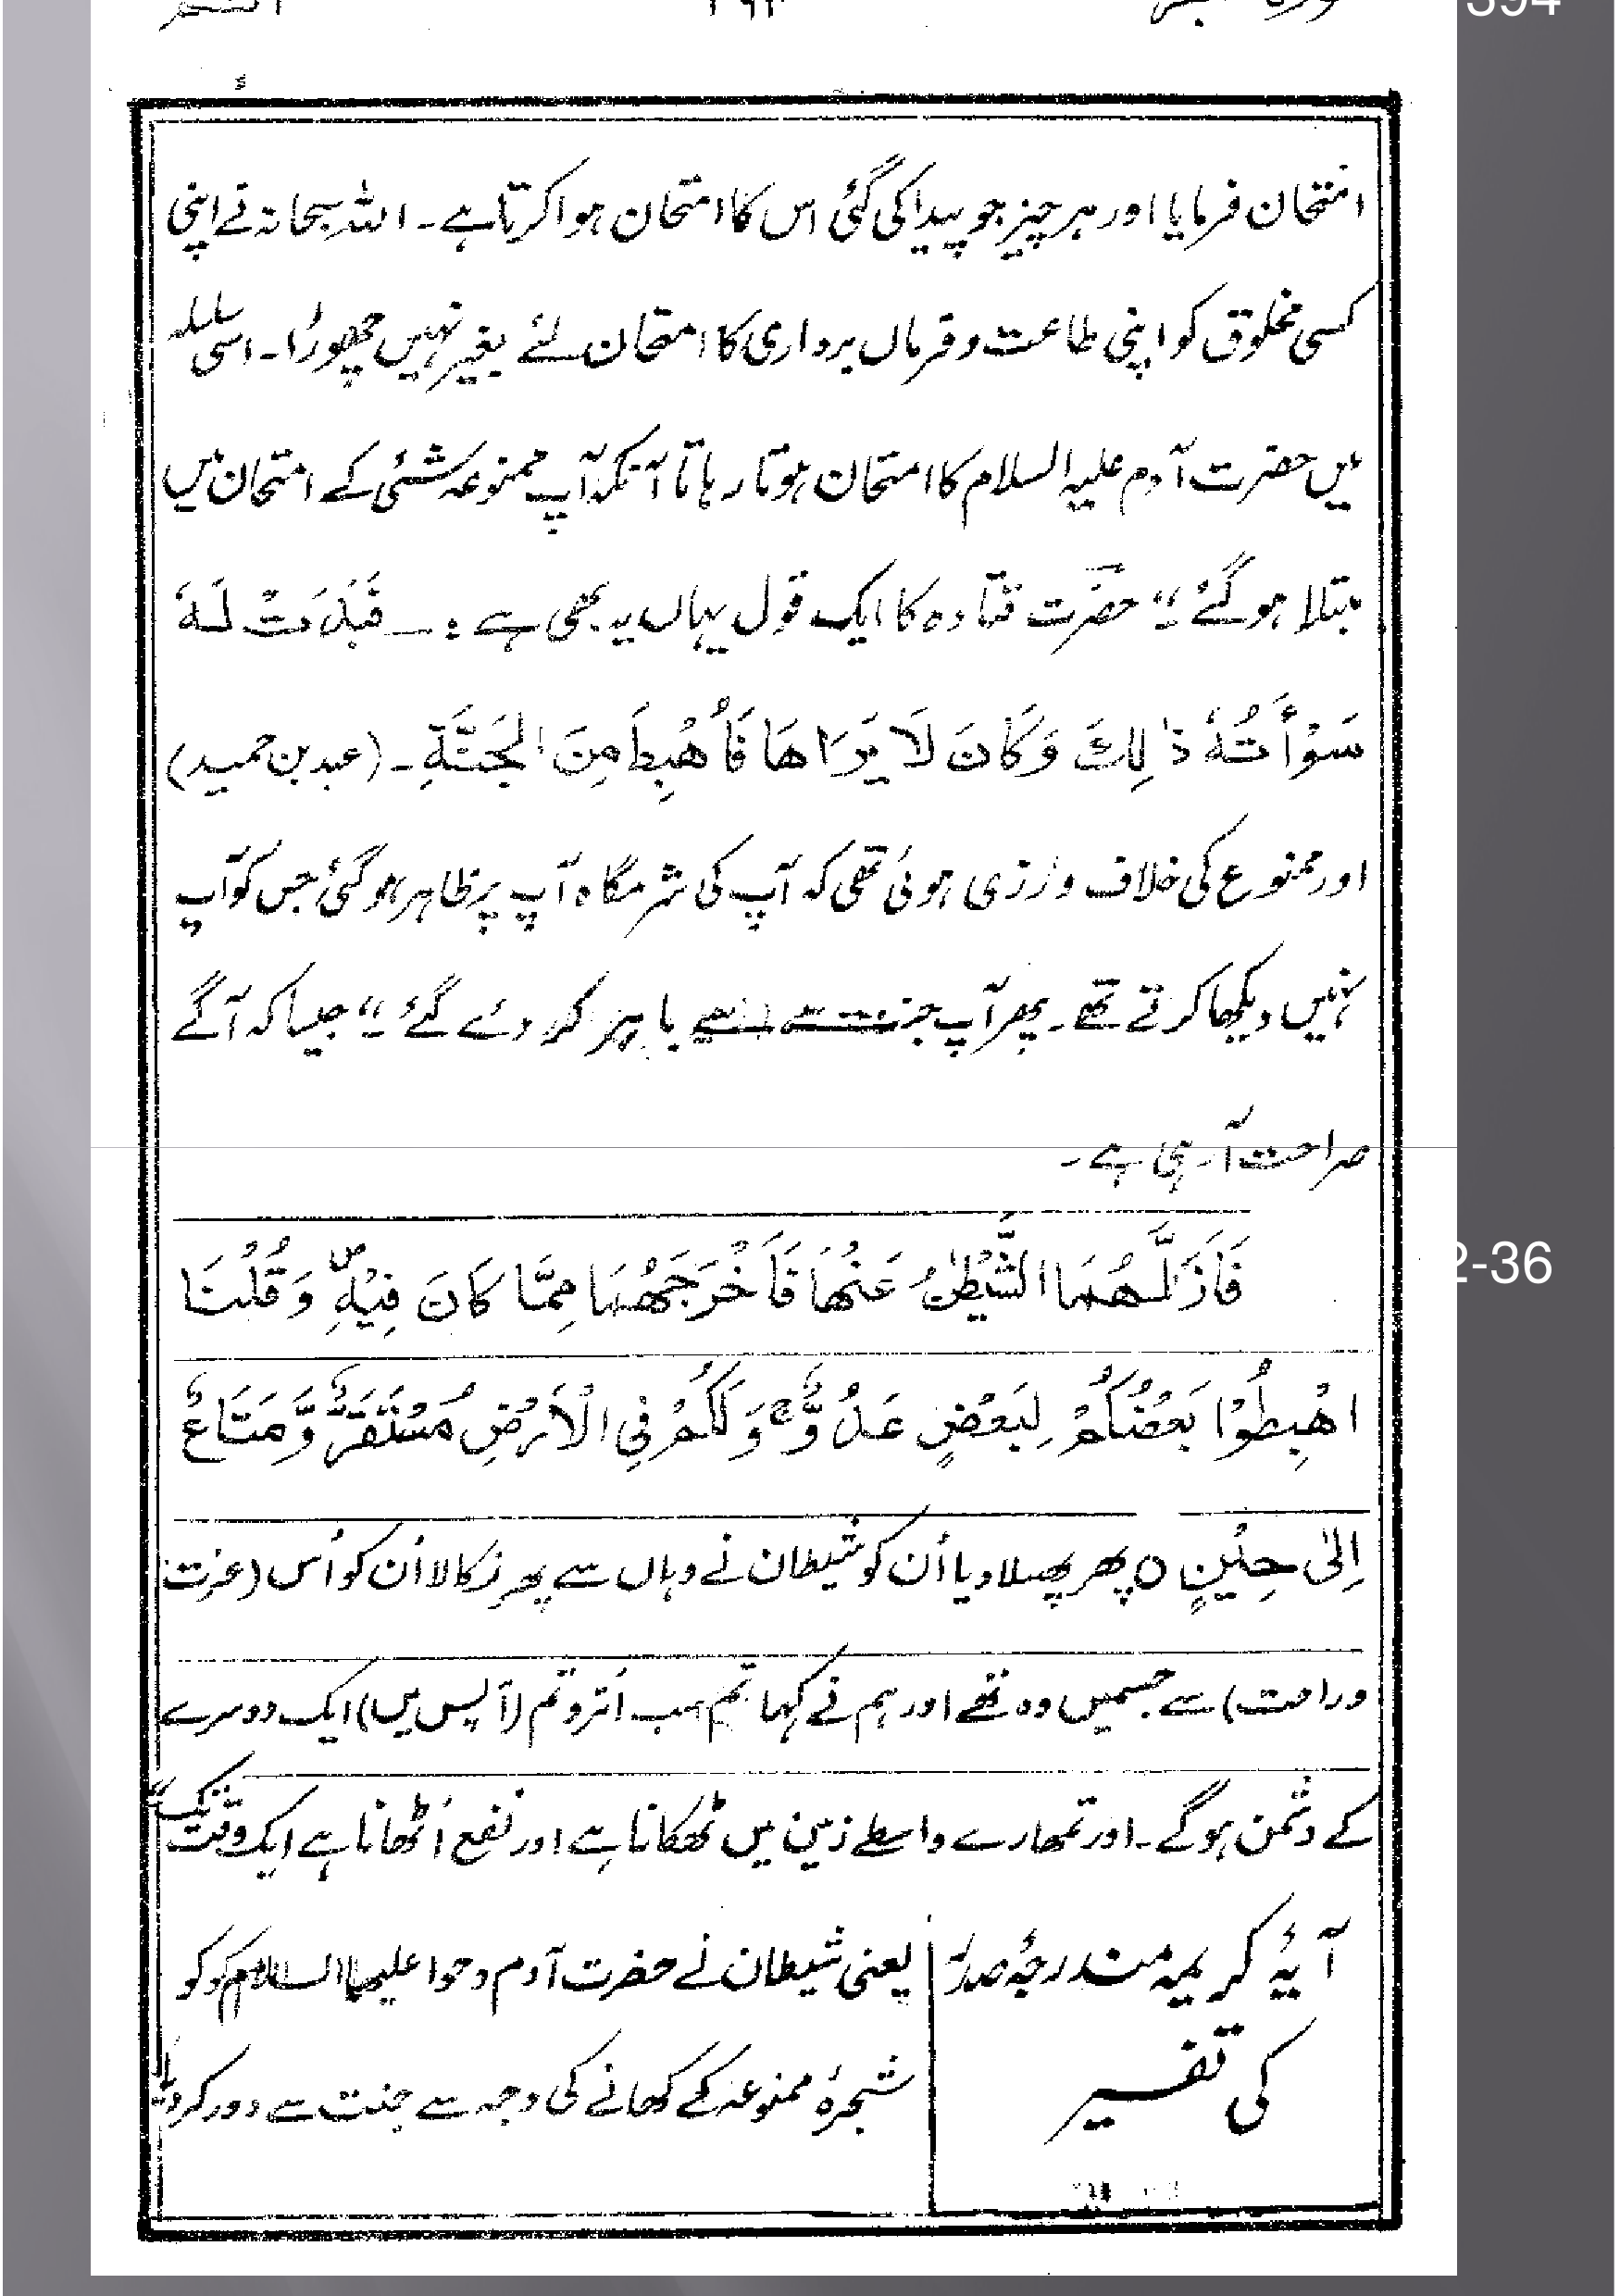 394
امتحان فرمایا اور ہر چیز جو پیدا کی گئی اس کا امتحان ہوا کرتا ہے۔ اللہ سبحانہ نے اپنی
کسی مخلوق کو اپنی طاعت و فرماں برداری کا امتحان لئے بغیر نہیں چھوڑا۔ اسی سلسلہ
میں حضرت آدم علیہ السلام کا امتحان ہوتا رہا تا آنکہ آپ ممنوعہ شئی کے امتحان میں
مبتلا ہو گئے۔" حضرت قتادہ کا ایک قول یہاں یہ بھی ہے :۔ فَبَدَتْ لَهٗ
سَوْأَتُهٗ ذٰلِكَ وَكَانَ لَا يَرَاهَا فَأُهْبِطَ مِنَ الْجَنَّةِ۔ (عبد بن حمید)
اور ممنوع کی خلاف ورزی ہوئی تھی کہ آپ کی شرمگاہ آپ پر ظاہر ہو گئی جس کو آپ
نہیں دیکھا کرتے تھے۔ پھر آپ جنت سے باہر کر دئے گئے۔" جیسا کہ آگے
صراحت آرہی ہے۔
فَاَزَلَّهُمَا الشَّيْطٰنُ عَنْهَا فَاَخْرَجَهُمَا مِمَّا كَانَ فِيْهِ ۪ وَقُلْنَا
2-36
اهْبِطُوْا بَعْضُكُمْ لِبَعْضٍ عَدُوٌّ ۚ وَلَكُمْ فِي الْاَرْضِ مُسْتَقَرٌّ وَّمَتَاعٌ
اِلٰى حِيْنٍ ○ پھر پھسلا دیا اُن کو شیطان نے وہاں سے پھر نکالا اُن کو اُس (عزت
وراحت) سے جسمیں وہ تھے اور ہم نے کہا تم سب اُترو تم (آپس میں) ایک دوسرے
کے دشمن ہوگے۔ اور تمھارے واسطے زمین میں ٹھکانا ہے اور نفع اُٹھانا ہے ایک وقت تک"
آیۂ کریمہ مندرجۂ صدر
کی تفسیر
یعنی شیطان نے حضرت آدم و حوا علیہما السلام کو کو
شجرۂ ممنوعہ کے کھانے کی وجہ سے جنت سے دور کردیا